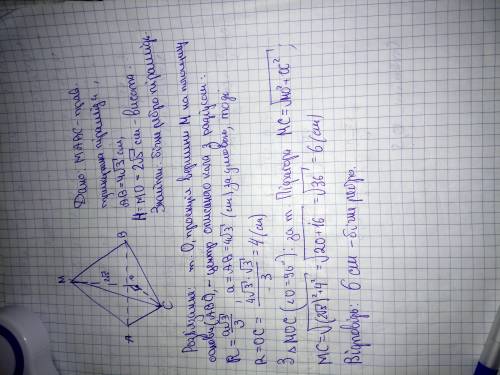 Дано: MABC - прав
трикутна піраміда,
AB=4√3 см,
H=MO=2√5 см - висота.
Знайти: бічне ребро піраміди
M
2√5
A
B
O
C
Розв'язання: т. O, проекція вершини M на площину
основи (ABC), - центр описаного кола з радіусом:
R = a√3/3, a=AB=4√3 (см) за умовою, тоді
R=OC= 4√3·√3/3 = 4 (см)
З △MOC (∠O=90°): за т. Піфагора MC=√MO²+OC²;
MC=√(2√5)²+4² = √20+16 = √36 = 6 (см)
Відповідь: 6 см - бічне ребро.